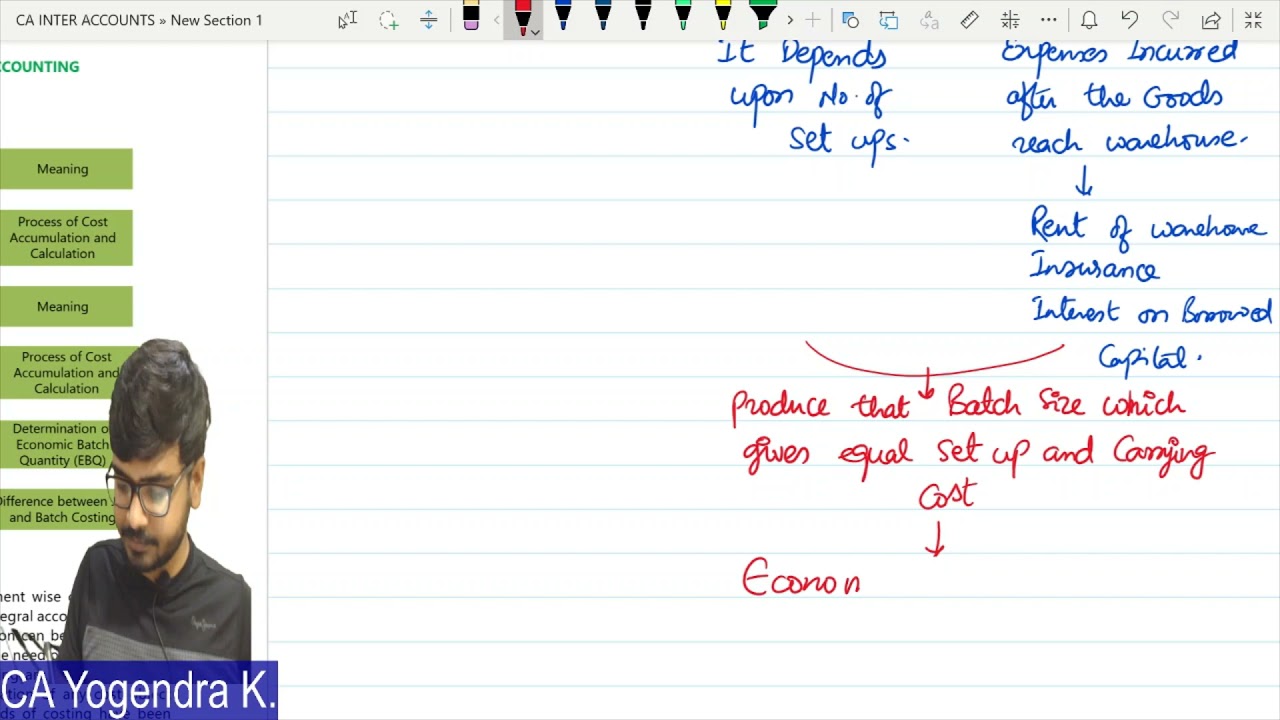 CA INTER ACCOUNTS » New Section 1
CCOUNTING
Meaning
Process of Cost
Accumulation and
Calculation
Meaning
Process of Cost
Accumulation and
Calculation
Determination o
Economic Batch
Quantity (EBQ)
Difference between
and Batch Costing
ment wise
egral acco
on can be
e need
ds of costing have been
CA Yogendra K.
It Depends
upon No. of
Set ups.
Expenses Incurred
after the Goods
reach warehouse.
↓
Rent of warehouse
Insurance
Interest on Borrowed
Capital.
Produce that Batch Size which
gives equal Set up and Carrying
Cost
↓
Econon